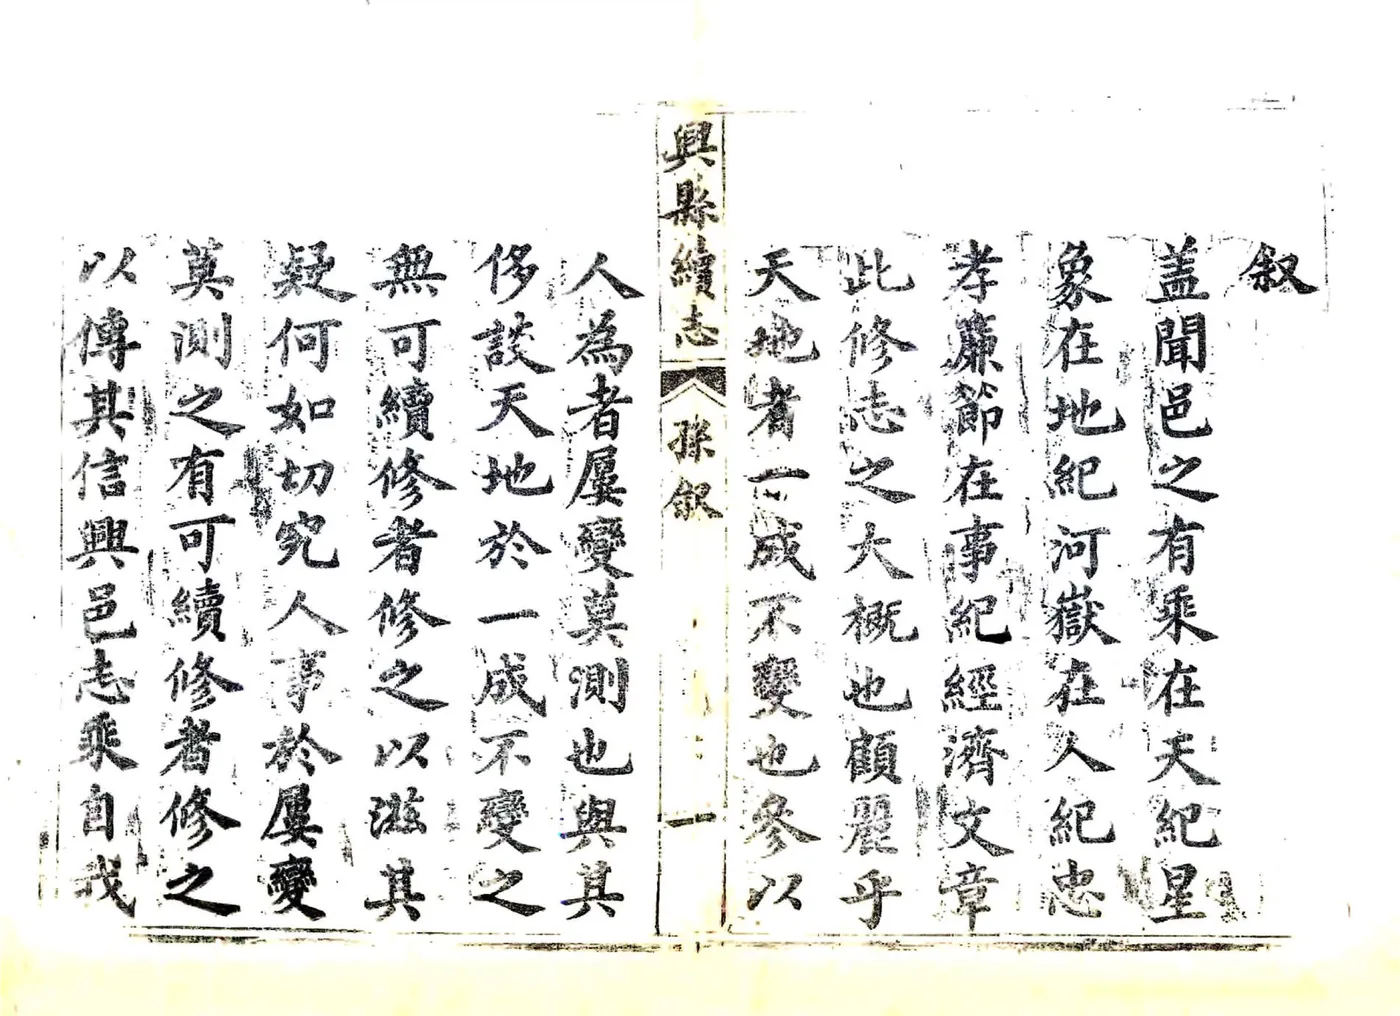 叙
盖聞邑之有乘在天紀星
象在地紀河嶽在人紀忠
孝廉節在事紀經濟文章
此修志之大概也顧麗乎
天地者一成不變也參以
興縣續志
孫叙
一
人為者屢變莫測也與其
侈談天地於一成不變之
無可續修者修之以滋其
疑何如切究人事於屢變
莫測之有可續修者修之
以傳其信興邑志乘自我